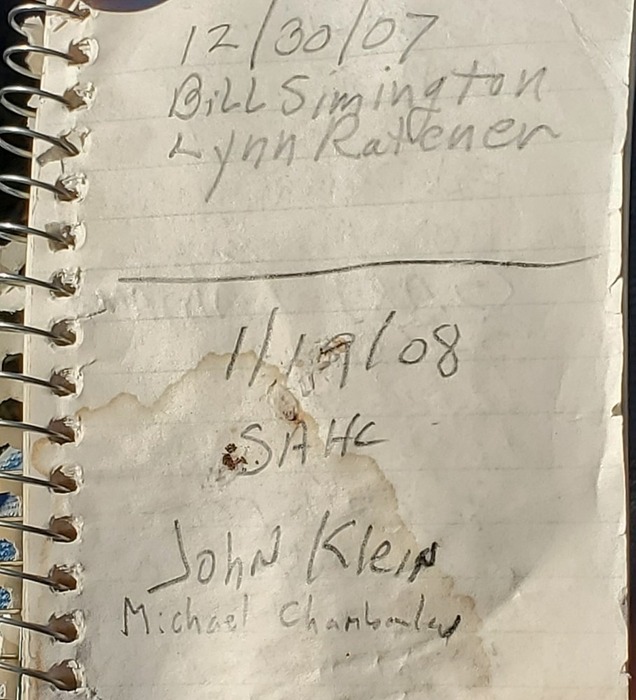 12/30/07
Bill Simington
Lynn
1/19/08
SAHC
John Klein
Michael